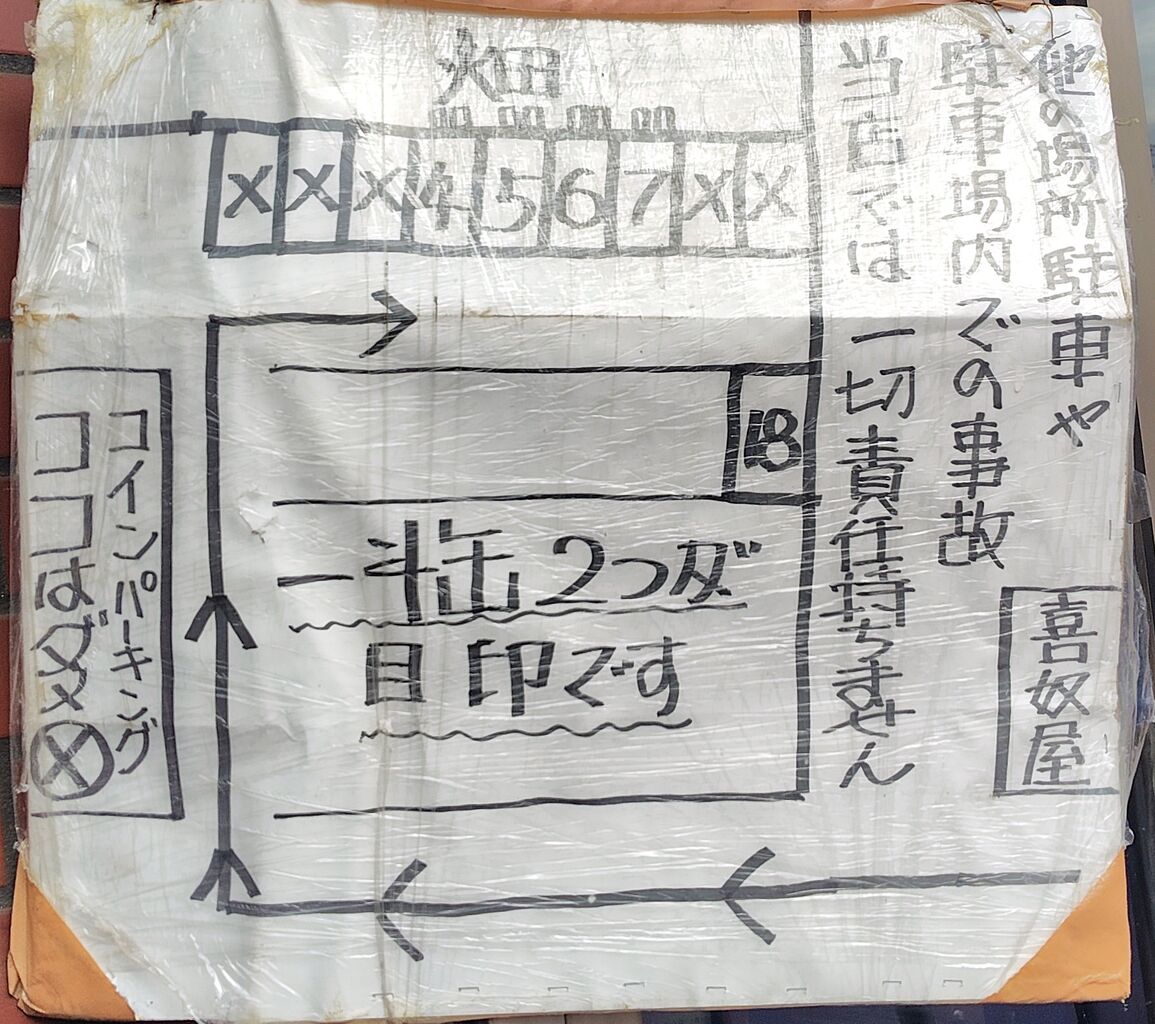 他の場所駐車や
駐車場内での事故
当店では一切責任持ちません
喜奴屋
畑
X X X 4 5 6 7 X X
18
一斗缶2つダ
目印です
コインパーキング
ココはダメ